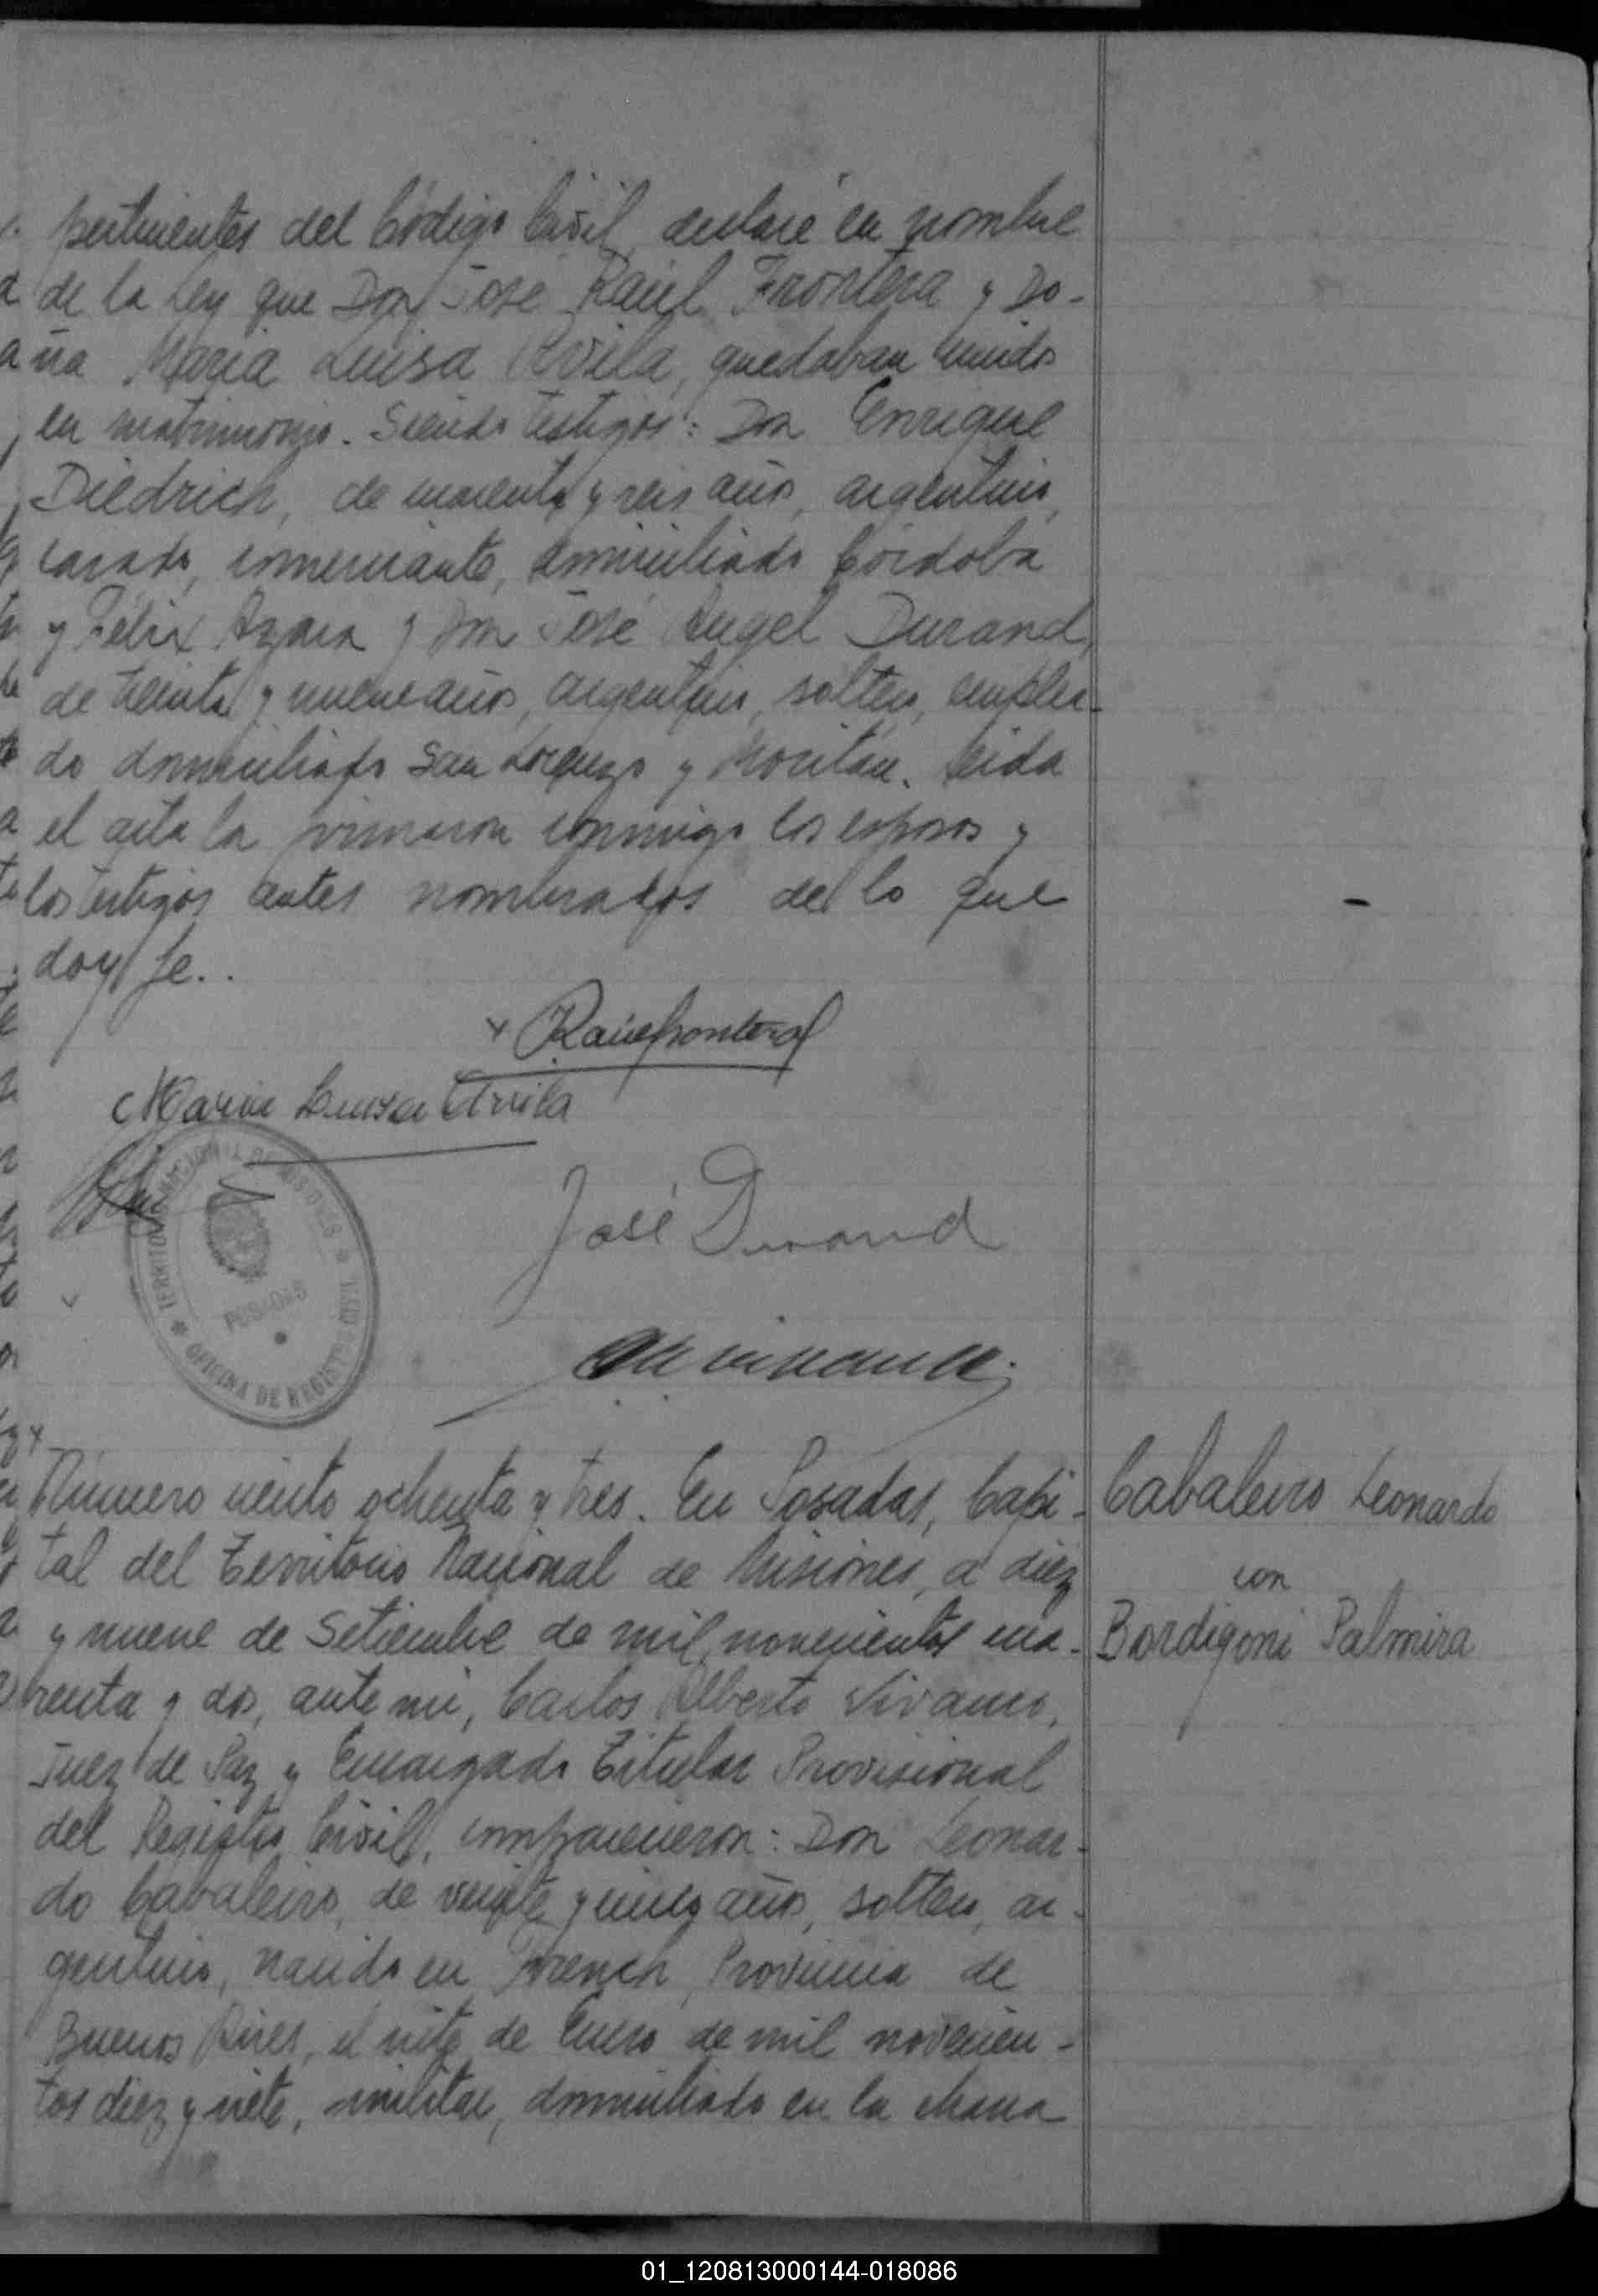 pertinentes del Código Civil, declaré en nombre
de la Ley que Don José Raúl Frontera y Do-
ña Maria Luisa Avila, quedaban unidos
en matrimonio. Siendo testigos: Don Enrique
Diedrich, de cuarenta y seis años, argentino,
casado, comerciante, domiciliado Córdoba
y Félix Azara y Don José Angel Durand,
de treinta y nueve años, argentino, soltero, emplea-
do domiciliado San Lorenzo y Moritán. Leida
el acta la firmaron conmigo los esposos y
los testigos antes nombrados de lo que
doy fe..
x Raúl Frontera
Maria Luisa Avila
TERRITORIO NACIONAL DE MISIONES
POSADAS
OFICINA DE REGISTRO CIVIL
José Durand
Número ciento ochenta y tres. En Posadas, Capi-
tal del Territorio Nacional de Misiones, a diez
y nueve de Setiembre de mil novecientos cua-
renta y dos, ante mi, Carlos Alberto Vivanco,
Juez de Paz y Encargado Titular Provisional
del Registro Civil, comparecieron: Don Leonar-
do Cabaleiro, de veinte y cinco años, soltero, ar-
gentino, nacido en French, Provincia de
Buenos Aires, el siete de Enero de mil novecien-
tos diez y siete, militar, domiciliado en la Chacra
Cabaleiro Leonardo
con
Bordigoni Palmira
01_120813000144-018086